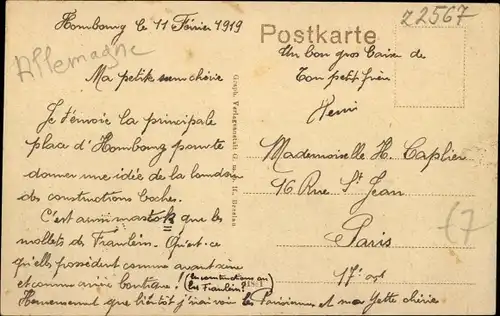 Hombourg le 11 Février 1919
Postkarte
22567
Allemagne
Ma petite sœur chérie
Je t'envoie la principale
place d'Hombourg pour te
donner une idée de la
des constructions boches.
C'est aussi mastok que les
mollets des Fraulein. Qu'est-ce
qu'elles possèdent comme avant scène
et comme arrière boutique! (les constructions ou
les Fraulein?
Heureusement que bientôt j'irai voir les Parisiennes et ma chérie
Graph. Verlagsanstalt G. m. b. H. Breslau
Un bon gros baiser de
Ton petit frère
Henri
Mademoiselle H. Caplier
16 Rue St Jean
Paris
17e art